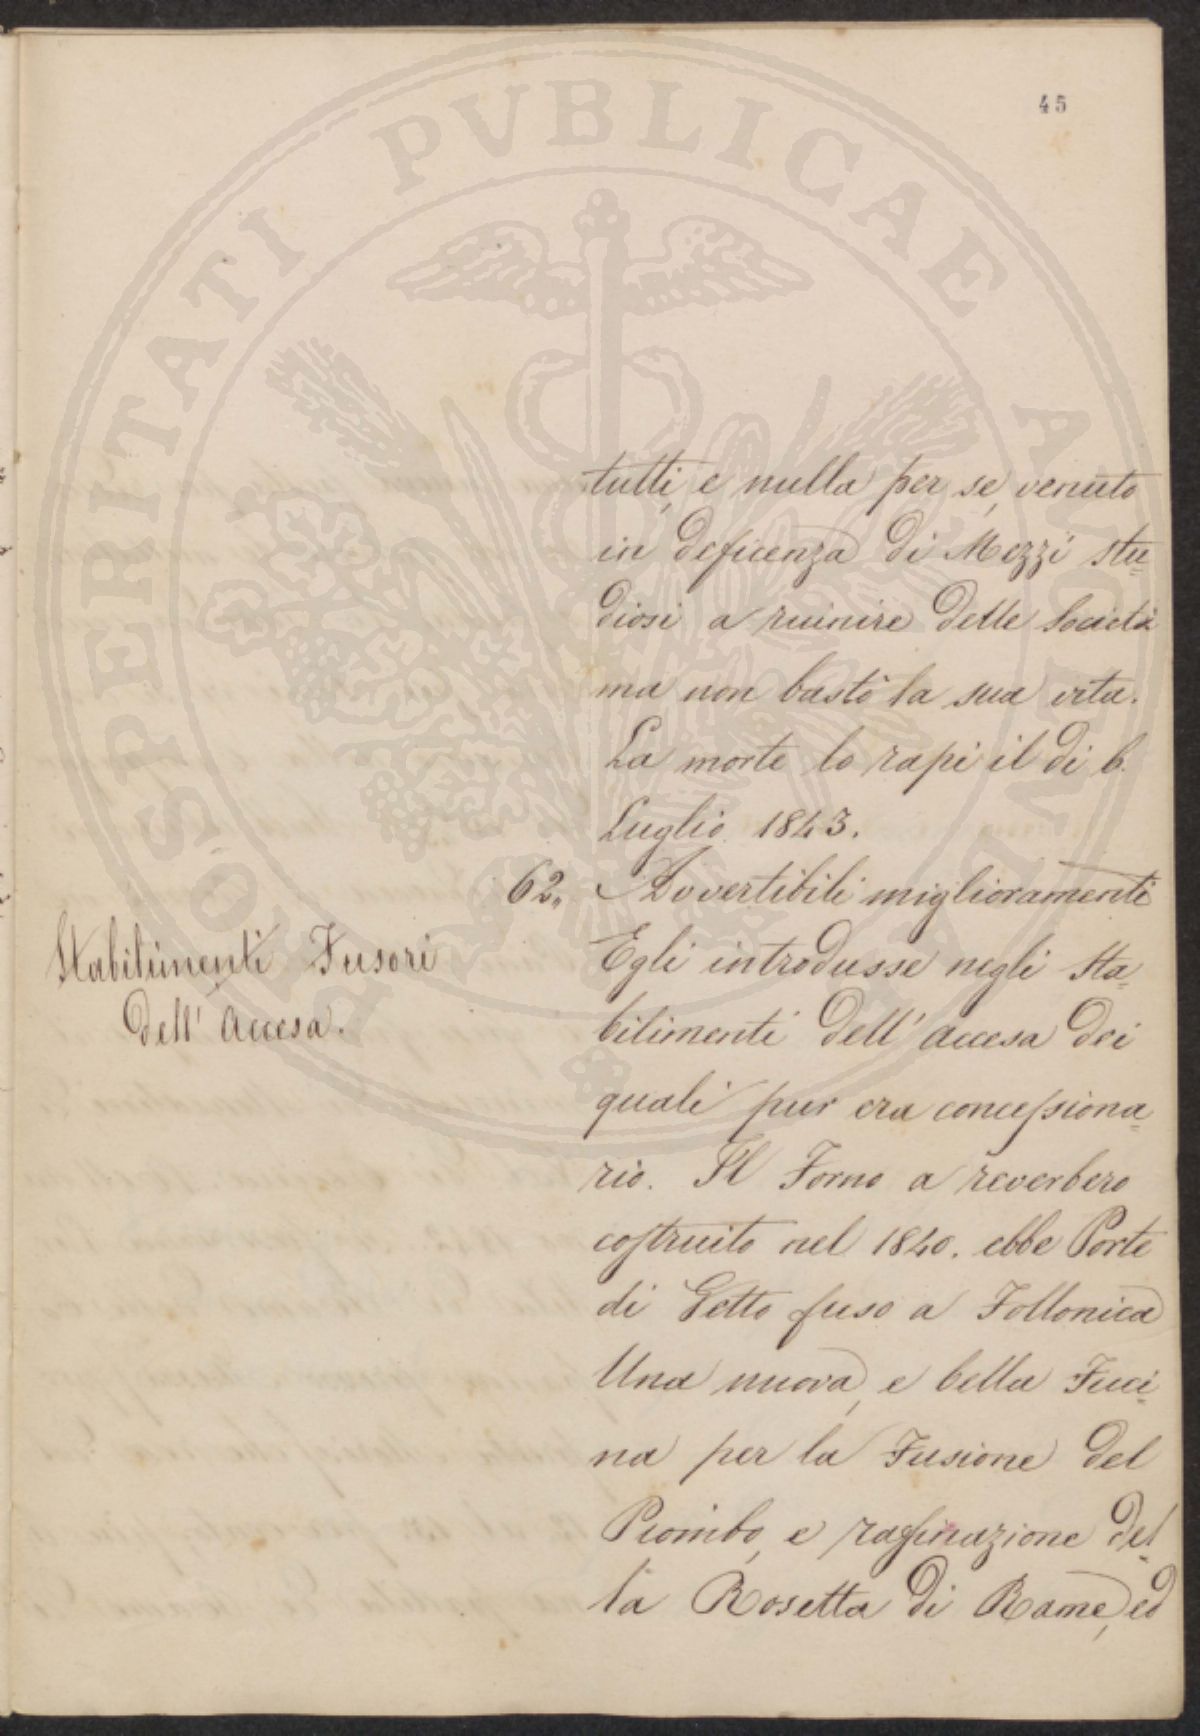 45
tutti, e nulla per se, venuto
in deficenza di Mezzi stu=
diosi a riunire delle Società
ma non bastò la sua vita.
La morte lo rapi il di 6.
Luglio 1843.
62„ Avvertibili miglioramenti
Stabilimenti Fusori
dell' Accesa.
Egli introdusse negli Sta=
bilimenti dell' Accesa dei
quali pur era concessiona=
rio. Il Forno a reverbero
costruito nel 1840. ebbe Porte
di Getto fuso a Follonica
Una nuova, e bella Fuci=
na per la Fusione del
Piombo, e raffinazione del=
la Rosetta di Rame, ed
PROSPERITATI PVBLICAE AVGENDAE